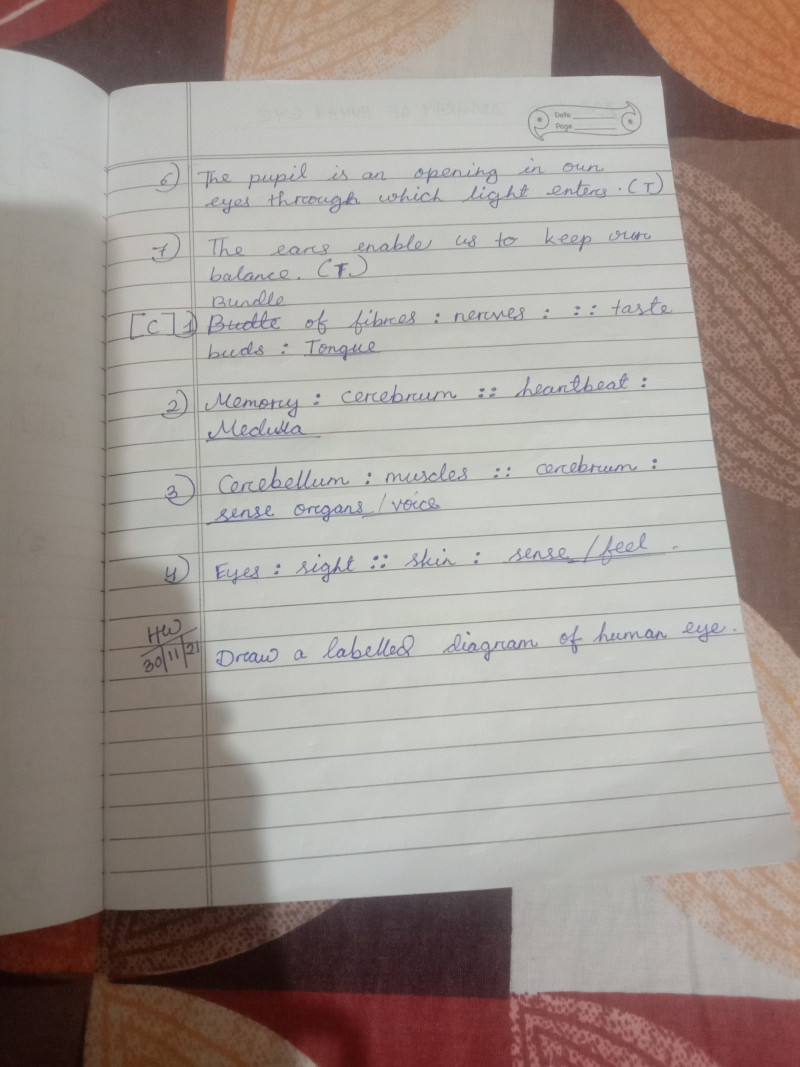 Date
Page
6) The pupil is an opening in our
eyes through which light enters. (T)
7) The ears enable us to keep our
balance. (T.)
Bundle
[C] 1) Budle of fibres : nerves : :: taste
buds : Tongue
2) Memory : cerebrum :: heartbeat :
Medulla
3) Cerebellum : muscles :: cerebrum :
sense organs / voice
4) Eyes : sight :: skin : sense / feel .
HW
30/11/21 Draw a labelled diagram of human eye.